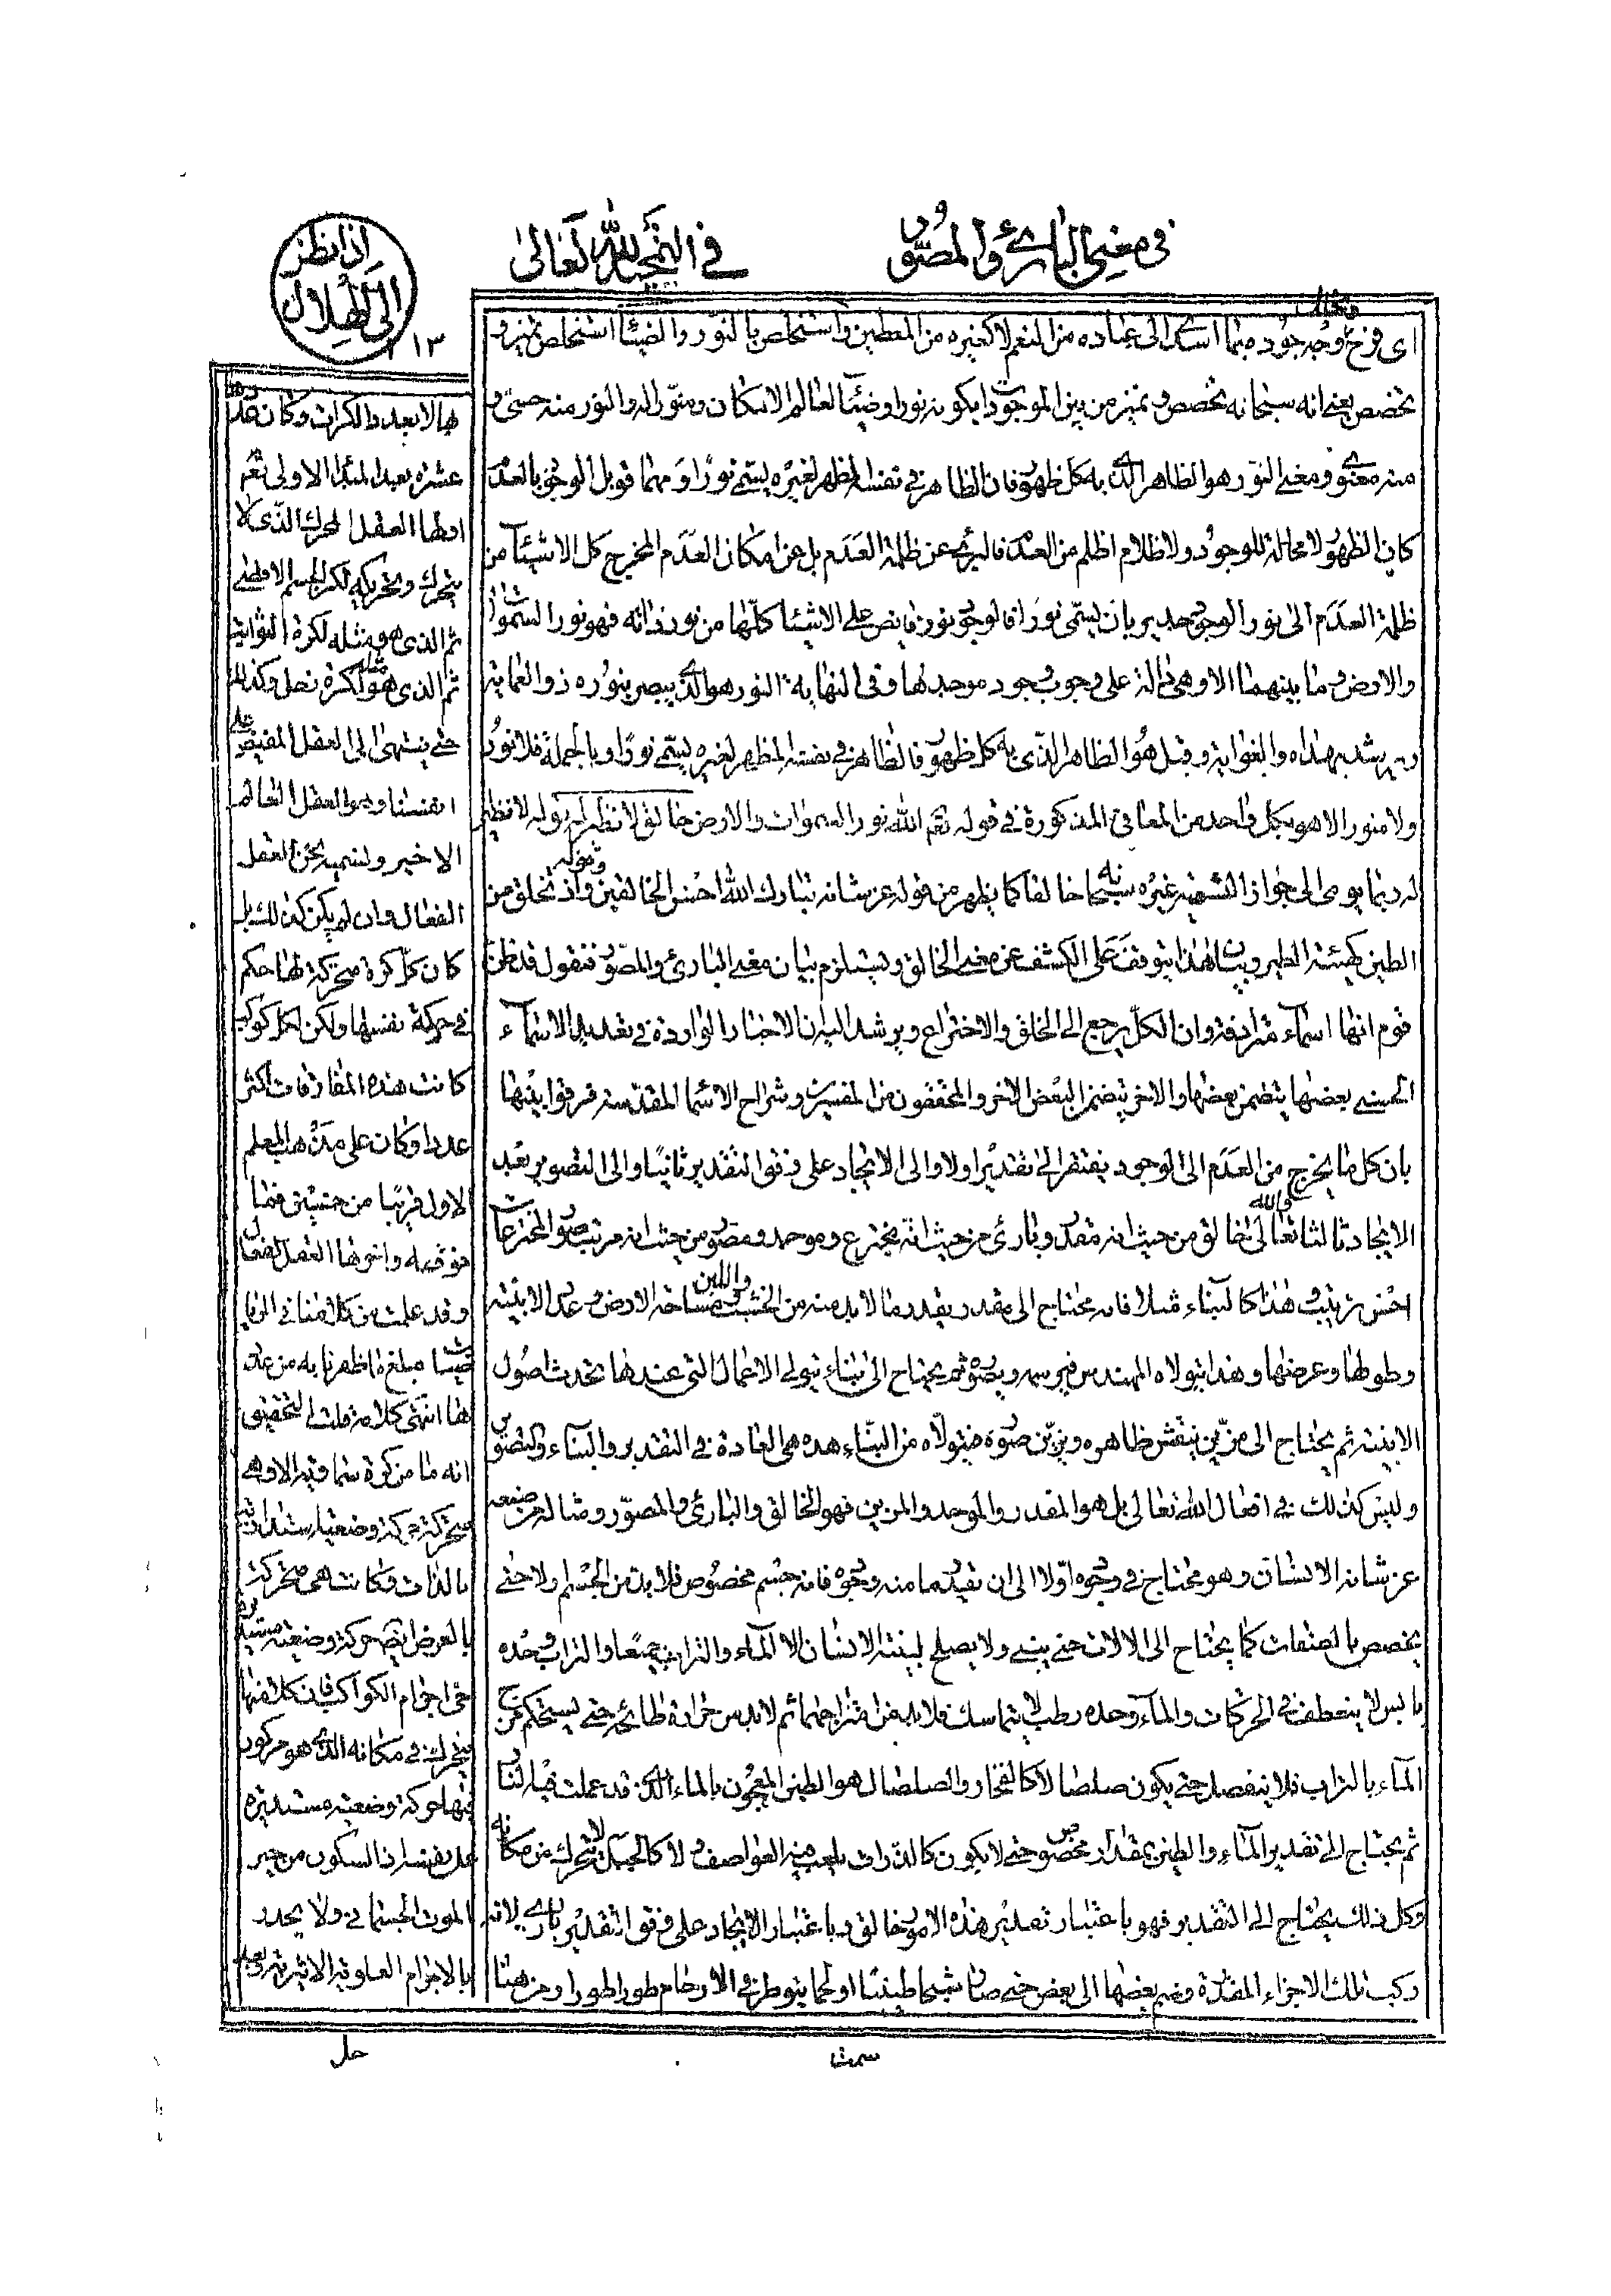 في معنى البارئ والمصور
في التحميد لله تعالى
اذا نظر
الى الهلال
٢١٣
اى فرخ وجه جوده بما اسدى الى عباده من النعم لا كغيره من المعطين واستخلص بالنور والضياء استخلص تميز و
تخصص يعنى انه سبحانه تخصص وتميز من بين الموجودا بكونه نورا وضياء لعالم الامكان ومنورا له والنور منه حسى و
منه معنوى ومعنى النور هو الظاهر الذى به كل ظهور فان الظاهر فى نفسه المظهر لغيره يسمى نورا ومهما قوبل الوجود بالعدم
كان الظهور لا محالة للوجود ولا ظلام اظلم من العدم فالبرئ عن ظلمة العدم بل عن امكان العدم المخرج كل الاشياء من
ظلمة العدم الى نور الوجود جدير بان يسمى نورا فالوجود نور فايض على الاشياء كلها من نور ذاته فهو نور السموات
والارض وما بينهما الا وهى دالة على وجوب وجود موجدها وفى النهاية النور هو الذى يبصر بنوره ذو العماية
ويرشد بهداه ذو الغواية وقيل هو الظاهر الذى به كل ظهور فالظاهر فى نفسه المظهر لغيره يسمى نورا وبالجملة فلا نور
ولا منور الا هو بكل واحد من المعانى المذكورة فى قوله تعم الله نور السموات والارض خالق لا نظير له قوله لا نظير
له ربما يومى الى جواز التسمية غيره سبحانه خالقا كما يظهر من قوله عز شانه تبارك الله احسن الخالقين وقوله واذ تخلق من
الطين كهيئة الطير وبيان هذا يتوقف على الكشف عن معنى الخالق ويستلزم بيان معنى البارئ والمصور فنقول قد ظن
قوم انها اسماء مترادفة وان الكل يرجع الى الخلق والاختراع ويرشد اليه ان الاخبار الواردة فى تعديد الاسماء
الحسنى بعضها يتضمن بعضها والاخر يتضمن البعض الاخر والمحققون من المفسرين وشراح الاسماء المقدسة فرقوا بينها
بان كل ما يخرج من العدم الى الوجود يفتقر الى تقدير اولا والى الايجاد على وفق التقدير ثانيا والى التصوير بعد
الايجاد ثالثا والله تعالى خالق من حيث انه مقدر وبارئ من حيث انه مخترع وموجد ومصور من حيث انه مرتب صور المخترعات
احسن ترتيب وهذا كالبناء مثلا فانه محتاج الى مقدر يقدر ما لا بد منه من الخشب واللبن ومساحة الارض وعدد الابنية
وطولها وعرضها وهذا يتولاه المهندس فيرسمه ويصوره ثم يحتاج الى بناء يتولى الاعمال التى عندها تحدث اصول
الابنية ثم يحتاج الى مزين ينقش ظاهره ويزين صورته فيتولاه من البناء هذه هى العادة فى التقدير والبناء والتصوير
وليس كذلك فى افعال الله تعالى بل هو المقدر والموجد والمزين فهو الخالق والبارئ والمصور ومثاله من صنعه
عز شانه الانسان وهو محتاج فى وجوده اولا الى ان يقدر ما منه وجوده فانه جسم مخصوص فلا بد من الجسم اولا حتى
يخصص بالصفات كما يحتاج الى الالات حتى يبنى ولا يصلح لبنية الانسان الا الماء والتراب جميعا والتراب وحده
يابس لا ينعطف فى الحركات والماء وحده رطب لا يتماسك فلا بد من امتزاجهما ثم لا بد من حرارة طابخة حتى يستحكم مزج
الماء بالتراب فلا ينفصل حتى يكون صلصالا كالفخار والصلصال هو الطين المعجون بالماء الذى قد عملت فيه النار
ثم يحتاج الى تقدير الماء والطين بمقدار مخصوص حتى لا يكون كالذرات يلعب فيه العواصف ولا كالجبل لا يتحرك من مكانه
وكل ذلك يحتاج الى التقدير فهو باعتبار تقدير هذه الامور خالق وباعتبار الايجاد على وفق التقدير بارئ لانه
ركب تلك الاجزاء المقدرة وضم بعضها الى بعض حتى صار شبحا طينيا او لحما يتوطن فى الارحام طورا طورا ومن هنا
سمت
عشرة بعد المبدا الاولى تعم
اولها العقل المحرك الذى لا
يتحرك وتحريكه لكرة الجسم الاقصى
ثم الذى هو مثله لكرة الثوابت
ثم الذى هو مثله لكرة زحل وكذلك
حتى ينتهى الى العقل المفيض على
انفسنا وهو العقل العالم
الاخير ونسميه نحن العقل
الفعال وان لم يكن كذلك بل
كان كل كرة متحركة لها حكم
فى حركة نفسها ولكل كوكب
كانت هذه المفارقات اكثر
عددا وكان على مذهب المعلم
الاول قريبا من خمسين فما
فوقه واخرها العقل الفعال
وقد علمت من كلامنا فى الرياضيات
مبلغ ما ظفرنا به من عددها
انتهى كلامه قلت التحقيق
انه ما من كرة سماوية الا وهى
متحركة حركة وضعية مستديرة
بالذات وكانت هى متحركة
بالعرض ايضا حركة وضعية مستديرة
حتى اجرام الكواكب فان كلا منها
يتحرك فى مكانه الذى هو مركوز
فيها حركة وضعية مستديرة
على نفسه اذ السكون من حيز
الموت الجسمانى ولا يجدر
بالاجرام العلوية الاثيرية
حل